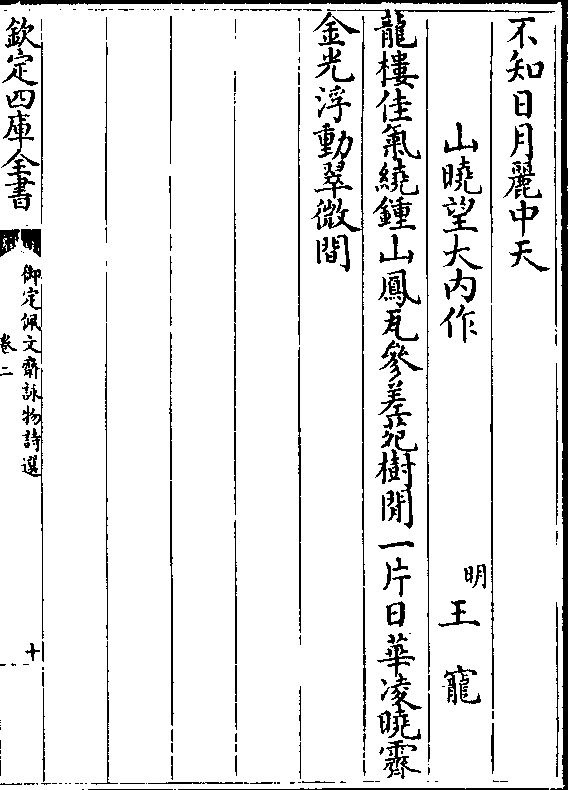 不知日月麗中天
山曉望大内作
明王寵
龍樓佳氣繞鍾山鳳瓦參差苑樹閒一片日華凌曉霽
金光浮動翠微間
欽定四庫全書
御定佩文齋詠物詩選
卷二
十